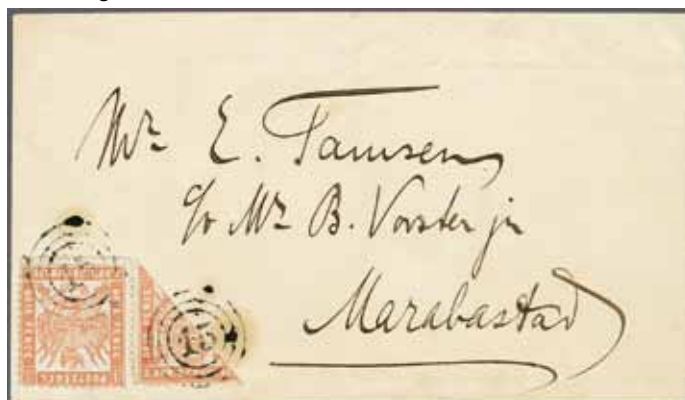 Mr. E. Tamsen
c/o Mr. B. Vorster jr
Marabastad
15